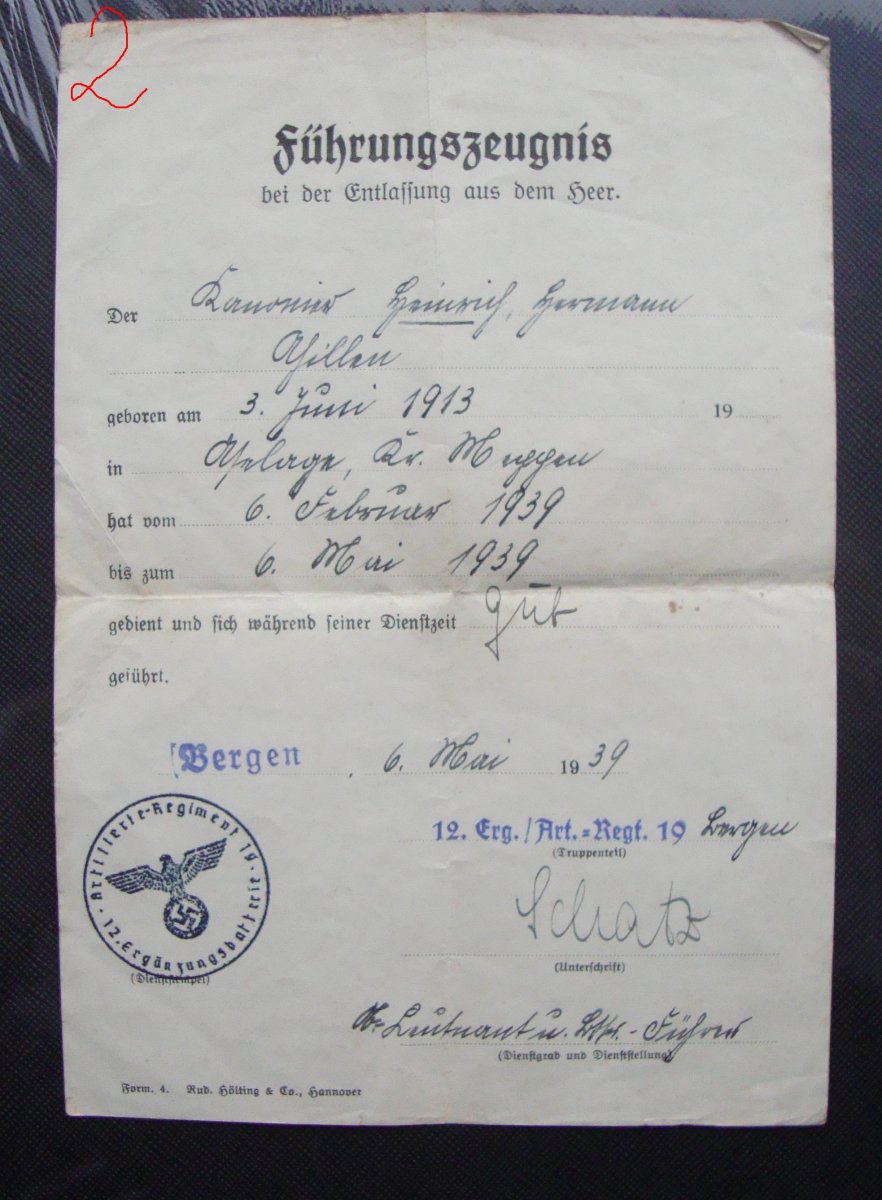 2
Führungszeugnis
bei der Entlassung aus dem Heer.
Der Kanonier Heinrich, Hermann
geboren am 3. Juni 1913 19
in Kr. Meppen
hat vom 6. Februar 1939
bis zum 6. Mai 1939
gedient und sich während seiner Dienstzeit gut
geführt.
Bergen, 6. Mai 1939
Artillerie-Regiment 19
12. Ergänzungsbatterie
(Dienststempel)
12. Erg./Art.-Regt. 19 Bergen
(Truppenteil)
Schatz
(Unterschrift)
Leutnant u. Bttr.-Führer
(Dienstgrad und Dienststellung)
Form. 4. Rud. Hölting & Co., Hannover